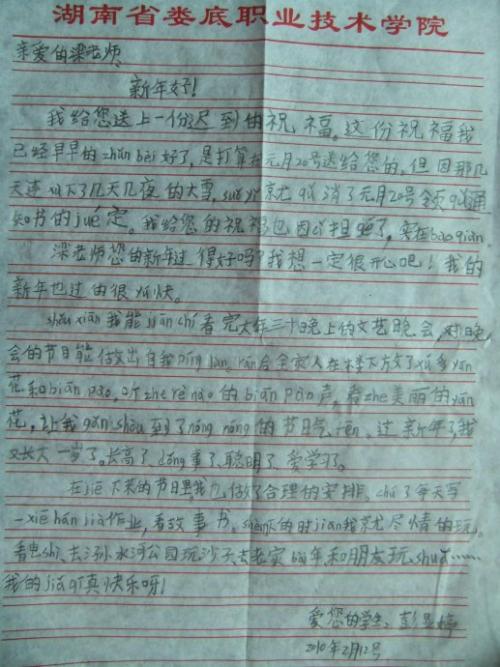 湖南省娄底职业技术学院
亲爱的梁老师,
新年好!
我给您送上一份迟到的祝福。这份祝福我
已经早早的zhǔn bèi好了,是打算在元月20号送给您的,但因那几
天连 下了几天几夜的大雪, 就 消了元月20号领 通
知书的jué定。我给您的祝福也因 担 了,实在bào qiàn
梁老师您的新年过得好吗?我想一定很开心吧!我的
新年也过的很 快。
shǒu xiān我能jiān chí看完大年三十晚上的文艺晚会,对晚
会的节目能做出自我 。rán后全家人在楼下放了xǔ多yān
花和biān pào。听zhe rè nào的biān pào声,看zhe美丽的yān
花,让我gǎn shòu到了nóng nóng的节日气 。过新年了,我
又长大一岁了。长高了、dǒng事了、聪明了、爱学习了。
在jiē下来的节日里我 做了合理的安排。chú了每天写
一xiē hán jià作业,看故事书。 的时jiān我就尽情的玩。
看电shì、去 水河公园玩沙子、去老家bài年、和朋友玩 ……
我的jià 真快乐呀!
爱您的学生:彭
2010年2月12号